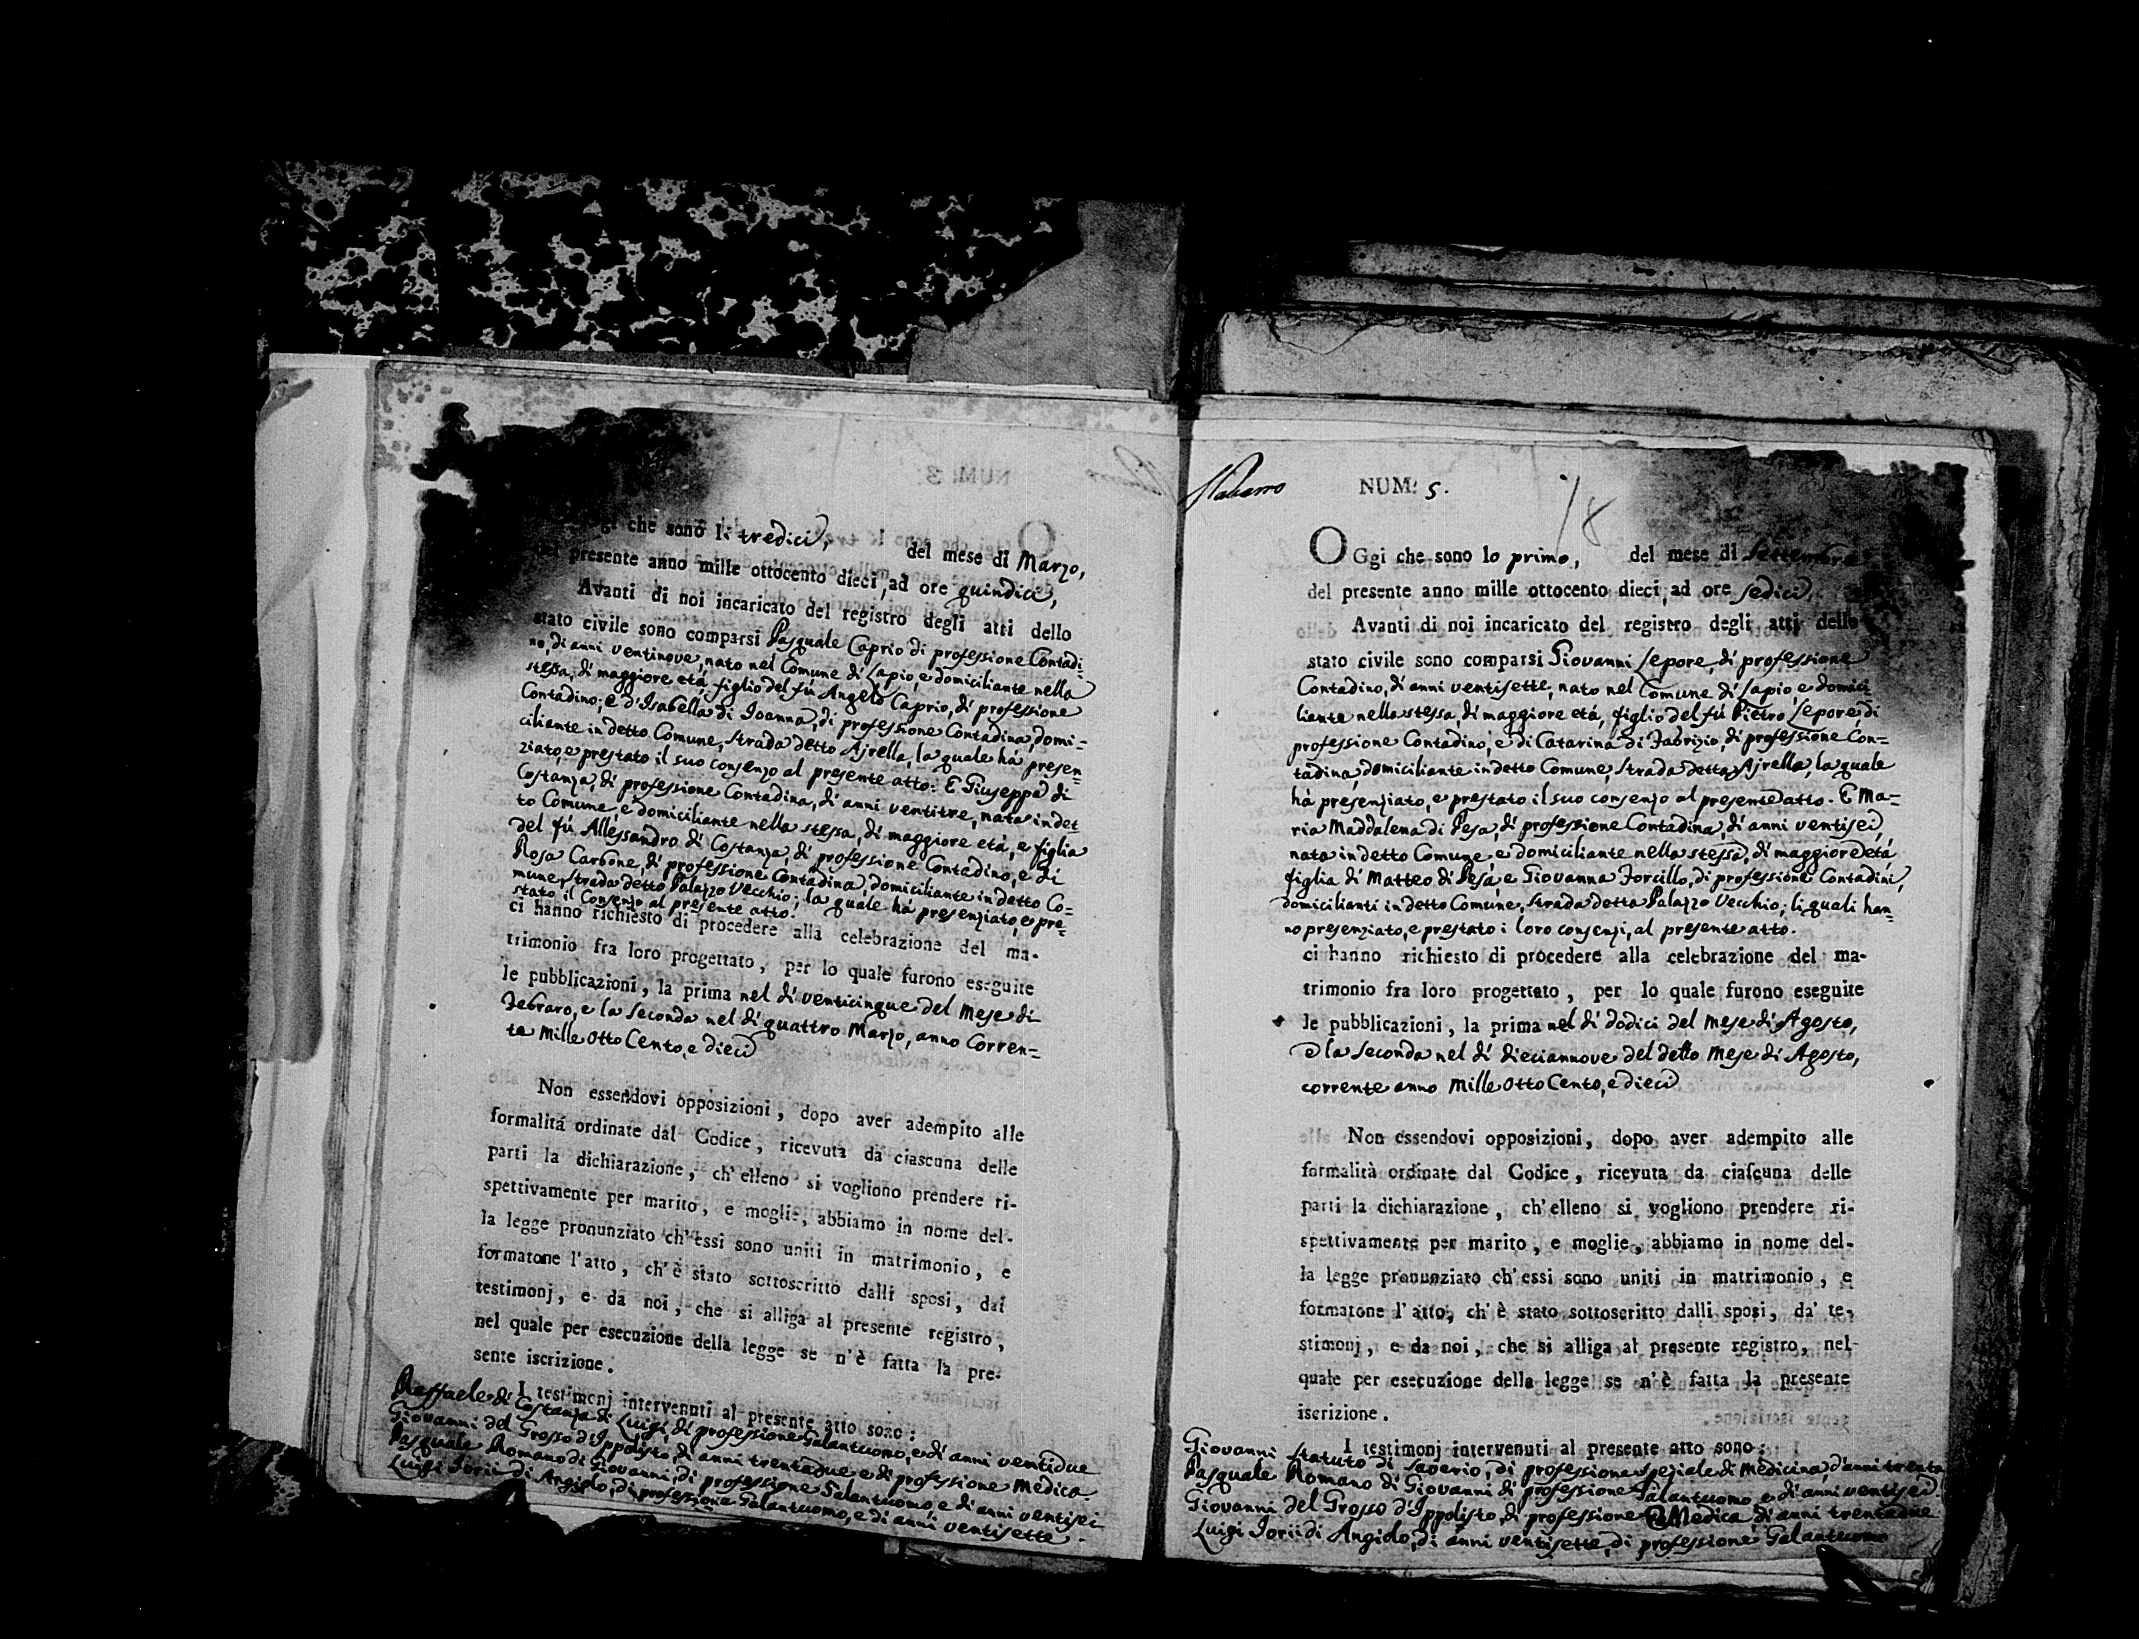 che sono li tredici, del mese di Marzo,
presente anno mille ottocento dieci, ad ore quindici,
Avanti di noi incaricato del registro degli atti dello
stato civile sono comparsi Pasquale Caprio di professione Contadi-
no, di anni ventinove, nato nel Comune di Lapio, e domiciliante nella
stessa, di maggiore etá, figlio del fú Angelo Caprio, di professione
Contadino, e d'Isabella di Ioanna, di professione Contadina, domi-
ciliante in detto Comune, Strada detto Ajrella, la quale há presen-
ziato, e prestato il suo consenzo al presente atto: E Giuseppa di
Costanza, di professione Contadina, di anni ventitre, nata in det-
to Comune, e domiciliante nella stessa, di maggiore etá, e figlia
del fú Allessandro di Costanza, di professione Contadino, e di
Rosa Carbone, di professione Contadina, domiciliante in detto Co-
mune, Strada detto Palazzo Vecchio; la quale há presenziato, e pre-
stato il Consenzo al presente atto.
ci hanno richiesto di procedere alla celebrazione del ma-
trimonio fra loro progettato, per lo quale furono eseguite
le pubblicazioni, la prima nel dí venticinque del Mese di
Febraro, e la Seconda nel dí quattro Marzo, anno Corren-
te Mille Otto Cento, e dieci
Non essendovi opposizioni, dopo aver adempito alle
formalitá ordinate dal Codice, ricevuta da ciascuna delle
parti la dichiarazione, ch'elleno si vogliono prendere ri-
spettivamente per marito, e moglie, abbiamo in nome del-
la legge pronunziato ch'essi sono uniti in matrimonio, e
formatone l'atto, ch'è stato sottoscritto dalli sposi, dai
testimonj, e da noi, che si alliga al presente registro,
nel quale per esecuzione della legge se n'è fatta la pre-
sente iscrizione.
I testimonj intervenuti al presente atto sono:
Raffaele di Costanza di Luigi, di professione Galantuomo, e di anni ventidue
Giovanni del Grosso di Ippolisto, di anni trentadue e di professione Medica.
Pasquale Romano di Giovanni, di professione Galantuomo, e di anni ventisei
Luigi Iorii di Angiolo, di professione Galantuomo, e di anni ventisette.
NUM: 5.
18
OGgi che sono lo primo, del mese di Settembre
del presente anno mille ottocento dieci, ad ore sedici,
Avanti di noi incaricato del registro degli atti dello
stato civile sono comparsi Giovanni Lepore, di professione
Contadino, di anni ventisette, nato nel Comune di Lapio e domici-
liante nella stessa, di maggiore etá, figlio del fú Pietro Lepore, di
professione Contadino, e di Catarina di Fabrizio, di professione Con-
tadina, domiciliante in detto Comune, Strada detta Ajrella, la quale
há presenziato, e prestato il suo consenzo al presente atto. E Ma-
ria Maddalena di Pesa, di professione Contadina, di anni ventisei,
nata in detto Comune, e domiciliante nella stessa, di maggiore etá
figlia di Matteo di Pesa, e Giovanna Forcillo, di professione Contadini,
domicilianti in detto Comune, Strada detta Palazzo Vecchio; li quali han-
no presenziato, e prestato i loro consenzi, al presente atto.
ci hanno richiesto di procedere alla celebrazione del ma-
trimonio fra loro progettato, per lo quale furono eseguite
le pubblicazioni, la prima nel dí dodici del Mese di Agosto,
e la Seconda nel dí dieciannove del detto Mese di Agosto,
corrente anno Mille Otto Cento, e dieci
Non essendovi opposizioni, dopo aver adempito alle
formalità ordinate dal Codice, ricevuta da ciascuna delle
parti la dichiarazione, ch'elleno si vogliono prendere ri-
spettivamente per marito, e moglie, abbiamo in nome del-
la legge pronunziato ch'essi sono uniti in matrimonio, e
formatone l'atto, ch'è stato sottoscritto dalli sposi, da' te-
stimonj, e da noi, che si alliga al presente registro, nel-
quale per esecuzione della legge se n'è fatta la presente
iscrizione.
I testimonj intervenuti al presente atto sono:
Giovanni Statuto di Saverio, di professione Speziale di Medicina, d'anni trenta
Pasquale Romano di Giovanni di professione Galantuomo e di anni ventisei.
Giovanni del Grosso d'Ippolisto, di professione Medica di anni trentadue
Luigi Iorii di Angiolo, di anni ventisette, di professione Galantuomo